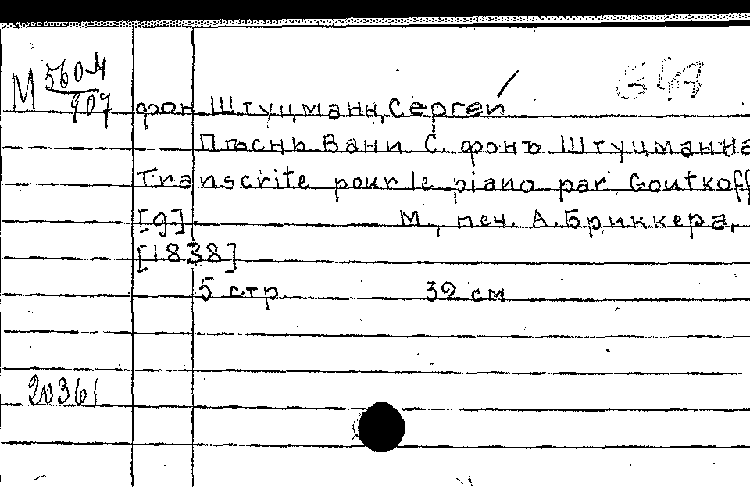 М 560-4
907
фон Штуцманн, Сергей
Пѣснь Вани С. фонъ Штуцманна
Transcrite pour le piano par Goutkoff
[g] М., печ. А. Бриккера,
[1838]
5 стр. 32 см
20361